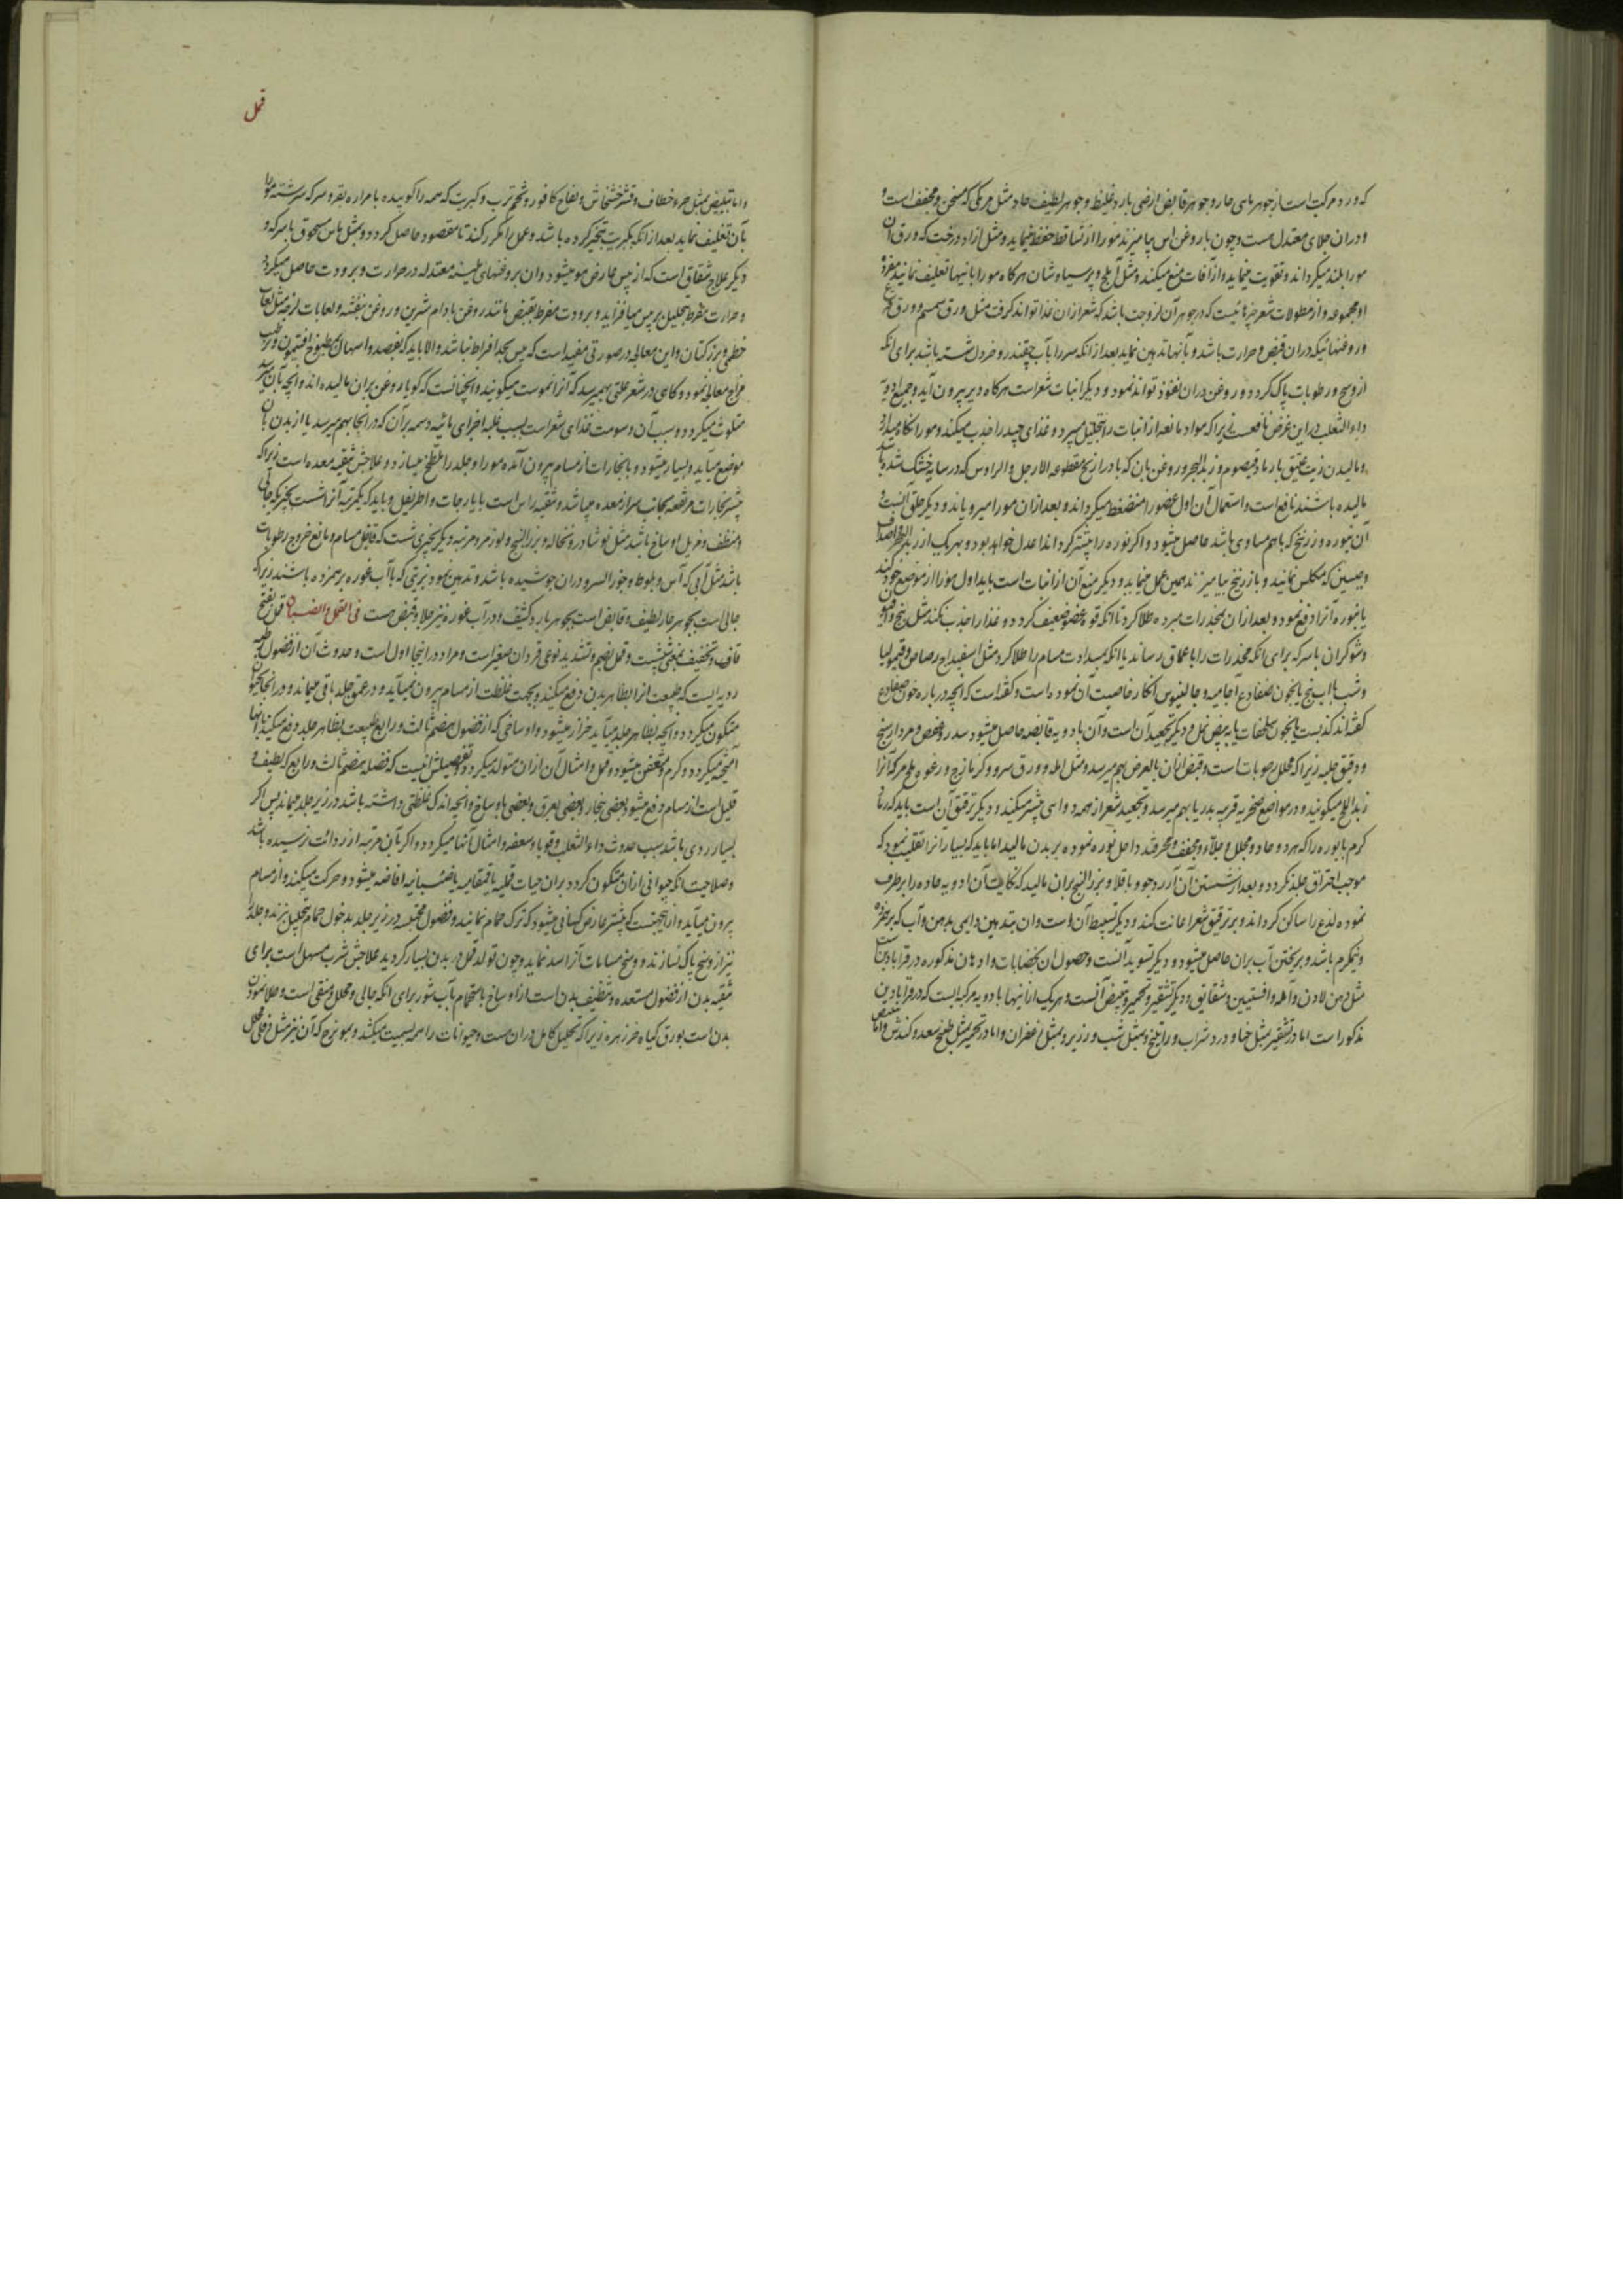 که ورد مرکبست از جوهرهای حار و جوهر قابض ارضی بارد غلیظ و جوهر لطیف حاد مثل مر مکی که مسخن و مجفف است و
و دران جلای معتدل هست و چون با روغن اس بیامیزند مو را از تساقط حفظ مینماید و مثل ازاد درخت که ورق آن
مو را بلند میکرداند و تقویت مینماید و از آفات منع میکند و مثل آمله و پرسیاوشان هرکاه مو را باینها تغلیف نمایند مفرد
او مجموعه و از مطولات شعر چیزهائیست که در جوهر آن لزوجت باشد که شعر ازان غذا تواند کرفت مثل ورق سمسم و ورق
و روغنهائیکه دران قبض و حرارت باشد و بآنها تدهین نماید بعد از انکه سر را بآب چقندر و خردل شسته باشد برای انکه
از وسخ و رطوبات پاک کردد و روغن دران نفوذ تواند نمود و دیکر انبات شعر است هرکاه دیر بیرون آید و جمیع ادویه
داء الثعلب در این غرض نافعست زیراکه مواد مانعه از انبات را بتحلیل میبرد و غذای جید را جذب میکند و مو را نکاه میدارد
و مالیدن زیت عتیق با رماد قیصوم و زبد البحر و روغن بان که با ذراریح مقطوعه الارجل و الراوس که در سایه خشک شده باشد
مالیده باشند نافع است و استعمال آن اول عضو را منضغط میکرداند و بعد ازان مو را میرویاند و دیکر حلق آنست و
آن بنوره و زرنیخ که باهم مساوی باشد حاصل میشود و اکر نوره را بیشتر کردانند اعدل خواهد بود و بهریک از زبد البحر و اصداف
و جبسین که مکلس نمایند و با زرنیخ بیامیزند همین عمل مینماید و دیکر منع آن از انبات است باید اول مو را از موضع خود کند
یا بنوره آنرا دفع نمود و بعد ازان بمخدرات مبرده طلا کرد تا انکه قوه عضو ضعیف کردد و غذا را جذب نکند مثل بنج و افیون
و شوکران با سرکه برای انکه مخدرات را باعماق رساند یا انکه بمسدادت مسام را طلا کرد مثل اسفیداج رصاص و قیمولیا
و شب با اب بنج یا بخون ضفادع آجامیه و جالینوس انکار خاصیت آن نموده است و کفته است که آنچه درباره خون ضفادع
کفته اند کذبست یا بخون سلحفات یا به بیض نمل و دیکر تجعید آن است و آن بادویه قابضه حاصل میشود سدر و عفص و مرداسنج
و دقیق حلبه زیراکه محلل رطوبات است و قبض ازان بالعرض بهم میرسد و مثل امله و ورق سرو و کزمازج و رغوه ملح مر که آنرا
زبد الملح میکویند و در مواضع صخریه قریبه بدریا بهم میرسد و تجعید شعر از همه دواها بیشتر میکند و دیکر ترقیق آن است باید که رماد
کرم با بوره را که هردو حاد و محلل و جلاء و مجفف و محرقند داخل نوره نموده بر بدن مالید اما باید که بسیار انرا تقلیب نمود که
موجب احتراق جلد نکردد و بعد از شستن آن آرد جو و باقلا و بزر البنج بران مالید که نکایت آن ادویه حاده را برطرف
نموده لذع را ساکن کرداند و بر ترقیق شعر اعانت کند و دیکر تسبیط آن است و ان بتدهین دایمی بدهن و آب که برهمزده
و نیمکرم باشد و بریختن آب بران حاصل میشود و دیکر تسوید آنست و حصول ان بخضابات و ادهان مذکوره در قرابادین است
مثل دهن لادن و آمله و افسنتین و شقایق و دیکر تشقیر و تحمیر و تبییض آنست و هریک ازاینها بادویه مرکبه ایست که در قرابادین
مذکور است اما در تشقیر بمثل حنا و درد شراب و راتینج و بمثل شب و زریر و بمثل زعفران و اما در تحمیر بمثل طبخ سعد و کندش و اما
قمل
و اما تبییض بمثل خرء خطاف و قشر خشخاش و لفاح کافور و تخم ترب و کبریت که همه را کوبیده با مراره بقر و سرکه سرشته مو را
بآن تغلیف نماید بعد از انکه بکبریت تبخیر کرده باشد و عمل را مکرر کنند تا مقصود حاصل کردد و بمثل ماس مسحوق با سرکه و
دیکر علاج شقاقی است که از یبس عارض مو میشود و ان بروغنهای لینه معتدله در حرارت و برودت حاصل میکردد
و حرارت مفرط بتحلیل بر یبس میافزاید و برودت مفرط بقبض مانند روغن بادام شیرین و روغن بنفشه و لعابات لزجه مثل لعاب
خطمی و بزر کتان و این معالجه در صورتی مفید است که یبس بحد افراط نباشد والا باید که بفصد و اسهال بمطبوخ افتیمون و ترطیب
مزاج معالجه نمود و کاهی در شعر علتی بهم میرسد که آنرا نموست میکویند و آنچنانست که کویا روغن بران مالیده اند و آنچه بآن رسد
متلوث میکردد و سبب آن دسومت غذای شعر است بسبب غلبه اجزای مائیه دسمه بران که در انجا بهم میرسد یا از بدن بآن
موضع میآید و بسیار میشود و با بخارات از مسام بیرون آمده مو را و جلد را ملطخ میسازد و علاجش تنقیه معده است زیراکه
بیشتر بخارات مرتفعه بجانب سر از معده میباشد و تنقیه راس است با یارجات و اطریفل و باید که یکمرتبه آنرا شست بچیزی که جالی
و منظف و مزیل اوساخ باشد مثل نوشادر و نخاله و بزر البنج و بوره و مرتبه دیکر بچیزی شست که قابض مسام و مانع خروج رطوبات
باشد مثل آبی که آس و بلوط و جوز السرو دران جوشیده باشد و تدهین نمود بزیتی که با آب غوره برهمزده باشند زیراکه
جالی است بجوهر حار لطیف و قابض است بجوهر بارد کثیف و در آب غوره نیز جلا و قبض هست فی القمل و الصیبان قمل بفتح
قاف و تخفیف بمعنی شپشست و قمل بضم و تشدید نوعی قردان صغیر است و مراد در اینجا اول است و حدوث آن از فضول رطبه
ردیه ایست که طبیعت انرا بظاهر بدن دفع میکند و بجهت غلظت از مسام بیرون نمیآید و در عمق جلد باقی میماند و در انجا حیوان
متکون میکردد و آنچه بظاهر جلد میآید حزاز میشود و اوساخی که از فضول هضم ثالث و رابع طبیعت بظاهر جلد دفع میکند بانها
آمیخته میکردد و کرم و متعفن میشود و قمل و امثال آن ازان متولد میکردد و تفصیلش اینست که فضله هضم ثالث و رابع که لطیف و
قلیل است از مسام دفع میشود بعضی ببخار و بعضی بعرق و بعضی باوساخ و آنچه اندک غلظتی داشته باشد در زیر جلد میماند پس اکر
بسیار ردی باشد سبب حدوث داء الثعلب و قوبا و سعفه و امثال آنها میکردد و اکر بآن مرتبه از ردائت نرسیده باشد
و صلاحیت انکه حیوانی ازان متکون کردد بران حیات قملیه یا قمقامیه یا صیبانیه افاضه میشود و حرکت میکند و از مسام
بیرون میآید و از اینجهتست که بیشتر عارض کسانی میشود که ترک حمام نمایند و فضول محتبسه در زیر جلد بدخول حمام تحلیل نبرند و جلد را
نیز از وسخ پاک نسازند و وسخ مسامات آنرا سد نماید و چون تولد قمل در بدن بسیار کردید علاجش شرب مسهل است برای
تنقیه بدن از فضول مستعده و تنظیف بدن است از اوساخ باستحمام بآب شور برای انکه جالی و محلل و منقی است و طلا نمودن
بدن است بورق کیاه خرزهره زیراکه تحلیل کامل دران هست و حیوانات را همه بسمیت میکشد و بمویزج که آن نیز مثل دفلی محلل